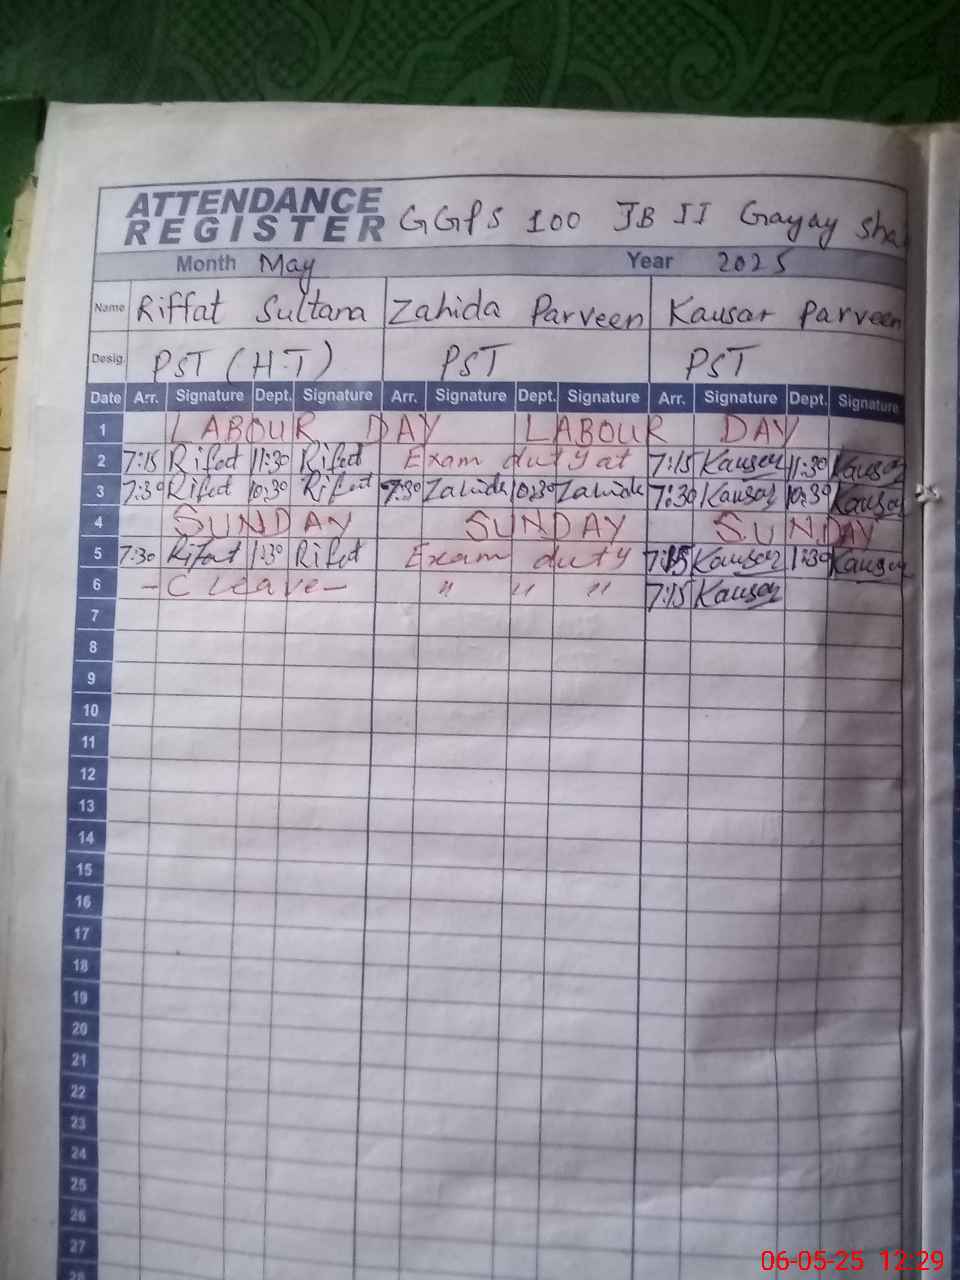 ATTENDANCE
REGISTER GGPS 100 JB II Gayay Sha
Month May Year 2025
Name Riffat Sultana Zahida Parveen Kausar Parveen
Desig. PST (H.T) PST PST
Date Arr. Signature Dept. Signature Arr. Signature Dept. Signature Arr. Signature Dept. Signature
1 LABOUR DAY LABOUR DAY
2 7:15 Rifat 11:30 Rifat Exam duty at 7:15 Kausar 11:30 Kausar
3 7:30 Rifat 10:30 Rifat 7:30 Zahida 10:30 Zahida 7:30 Kausar 10:30 Kausar
4 SUNDAY SUNDAY SUNDAY
5 7:30 Rifat 1:30 Rifat Exam duty 7:15 Kausar 1:30 Kausar
6 -C leave- " " " 7:15 Kausar
7
8
9
10
11
12
13
14
15
16
17
18
19
20
21
22
23
24
25
26
27
28
06-05-25 12:29